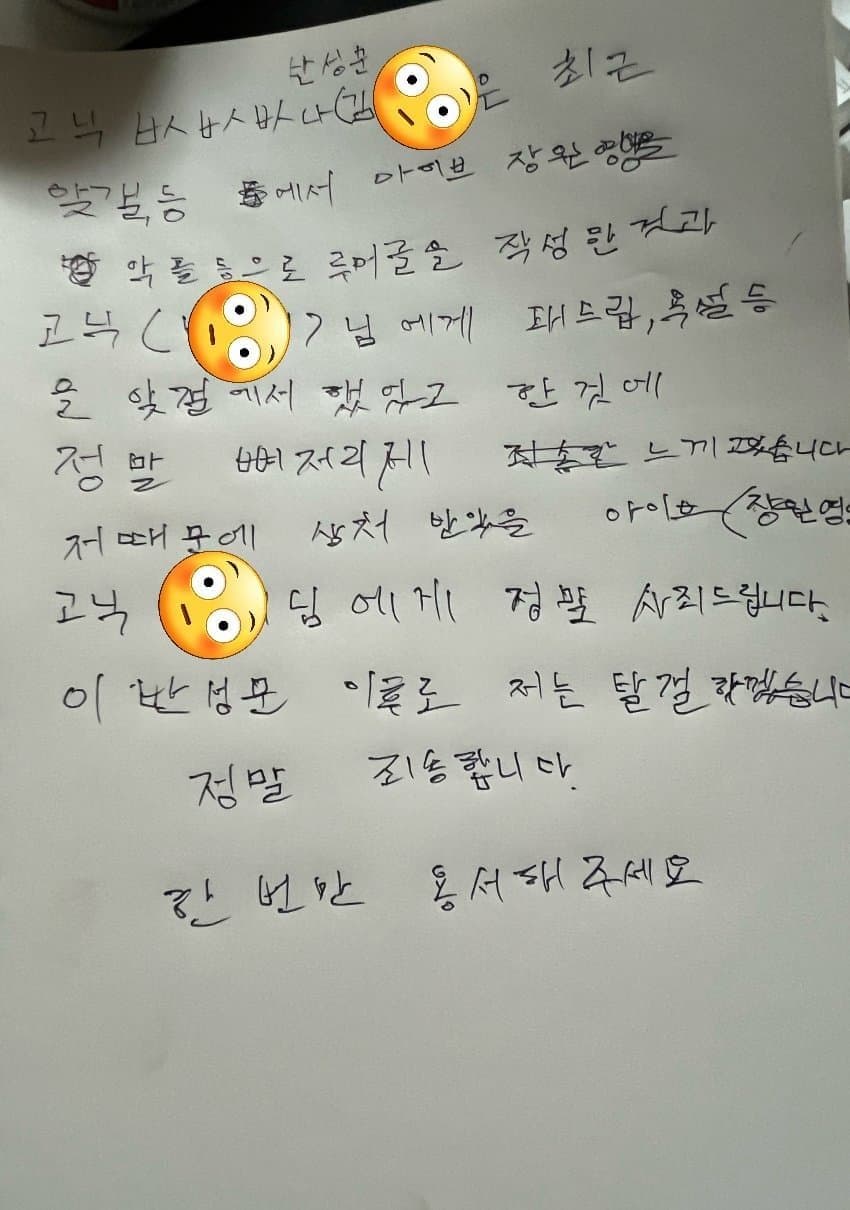 반성문
고닉 ㅂㅅㅂㅅ바나(김 은 최근
앚갤,등 에서 아이브 장원영을
악플등으로 루머글을 작성한것과
고닉 ( ) 님에게 패드립,욕설등
을 앚갤에서 했었고 한것에
정말 뼈저리게 느끼고있습니다
저때문에 상처 받았을 아이브(장원영
고닉 님에게 정말 사죄드립니다.
이 반성문 이후로 저는 탈갤하겠습니다
정말 죄송합니다.
한번만 용서해주세요